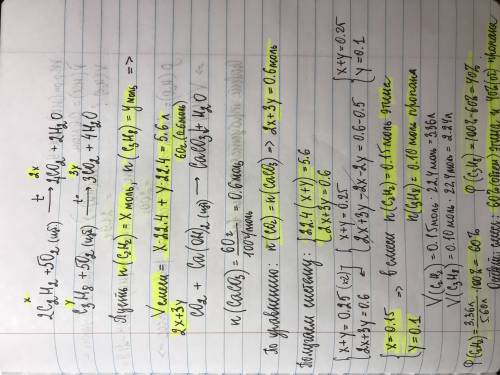 x 2x
2C₂H₂ + 5O₂(изб) →ᵗ 4CO₂ + 2H₂O
y 3y
C₃H₈ + 5O₂(изб) →ᵗ 3CO₂ + 4H₂O
Пусть n(C₂H₂) = x моль, n(C₃H₈) = y моль =>
Vсмеси = x·22.4 + y·22.4 = 5.6 л
2x+3y 60г (0.6 моль)
CO₂ + Ca(OH)₂(изб) → CaCO₃↓ + H₂O
n(CaCO₃) = 60г / 100г/моль = 0.6 моль
По уравнению: n(CO₂) = n(CaCO₃) => 2x+3y = 0.6 моль
Получаем систему: { 22.4(x+y) = 5.6
2x+3y = 0.6
{ x+y = 0.25 (x2) { x+y = 0.25 { x+y = 0.25
2x+3y = 0.6 2x+3y-2x-2y = 0.6-0.5 y = 0.1
{ x = 0.15 => в смеси n(C₂H₂) = 0.15 моль этина
y = 0.1 n(C₃H₈) = 0.10 моль пропана
V(C₂H₂) = 0.15 моль · 22.4 л/моль = 3.36л
V(C₃H₈) = 0.10 моль · 22.4 л/моль = 2.24л
φ(C₂H₂) = 3.36л / 5.60л · 100% = 60% φ(C₃H₈) = 100%-60% = 40%
Ответ: в смеси 60% этина и 40% пропана